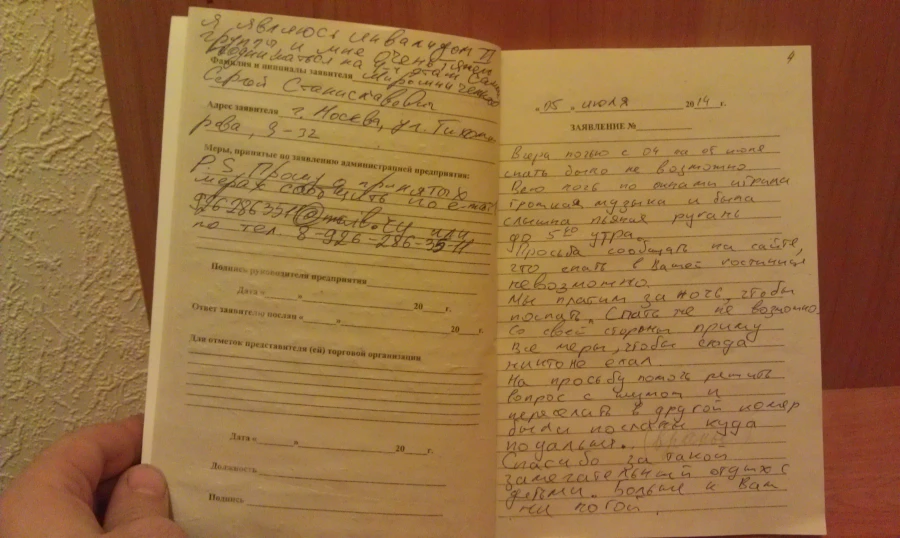 Я являюсь инвалидом II
группы и мне очень тяжело
подниматься на этаж
Фамилия и инициалы заявителя Мирошниченко
Сергей Станиславович
Адрес заявителя г. Москва, ул. Тихоми
рова, 9-32
Меры, принятые по заявлению администрацией предприятия:
P.S. Прошу о принятых
мерах сообщить по e-mail
или
по тел. 8-926-286-35-11
Подпись руководителя предприятия
Дата « » 20 г.
Ответ заявителю послан « » 20 г.
Для отметок представителя (ей) торговой организации
Дата « » 20 г.
Должность
Подпись
4
« 05 » июля 2014 г.
ЗАЯВЛЕНИЕ №
Вчера ночью с 04 на 05 июля
спать было не возможно
Всю ночь по окнами играла
громкая музыка и была
слышна пьяная ругань
до 5 00 утра.
Просьба сообщать на сайте,
что спать в Вашей гостинице
невозможно.
Мы платим за ночь, чтобы
поспать. Спать же не возможно.
Со своей стороны приму
Все меры, чтобы сюда
никто не ехал
На просьбу помочь решить
вопрос с шумом и
переселить в другой номер
были посланы куда
подальше.
Спасибо за такой
замечательный отдых с
детьми. Больше к Вам
ни ногой.